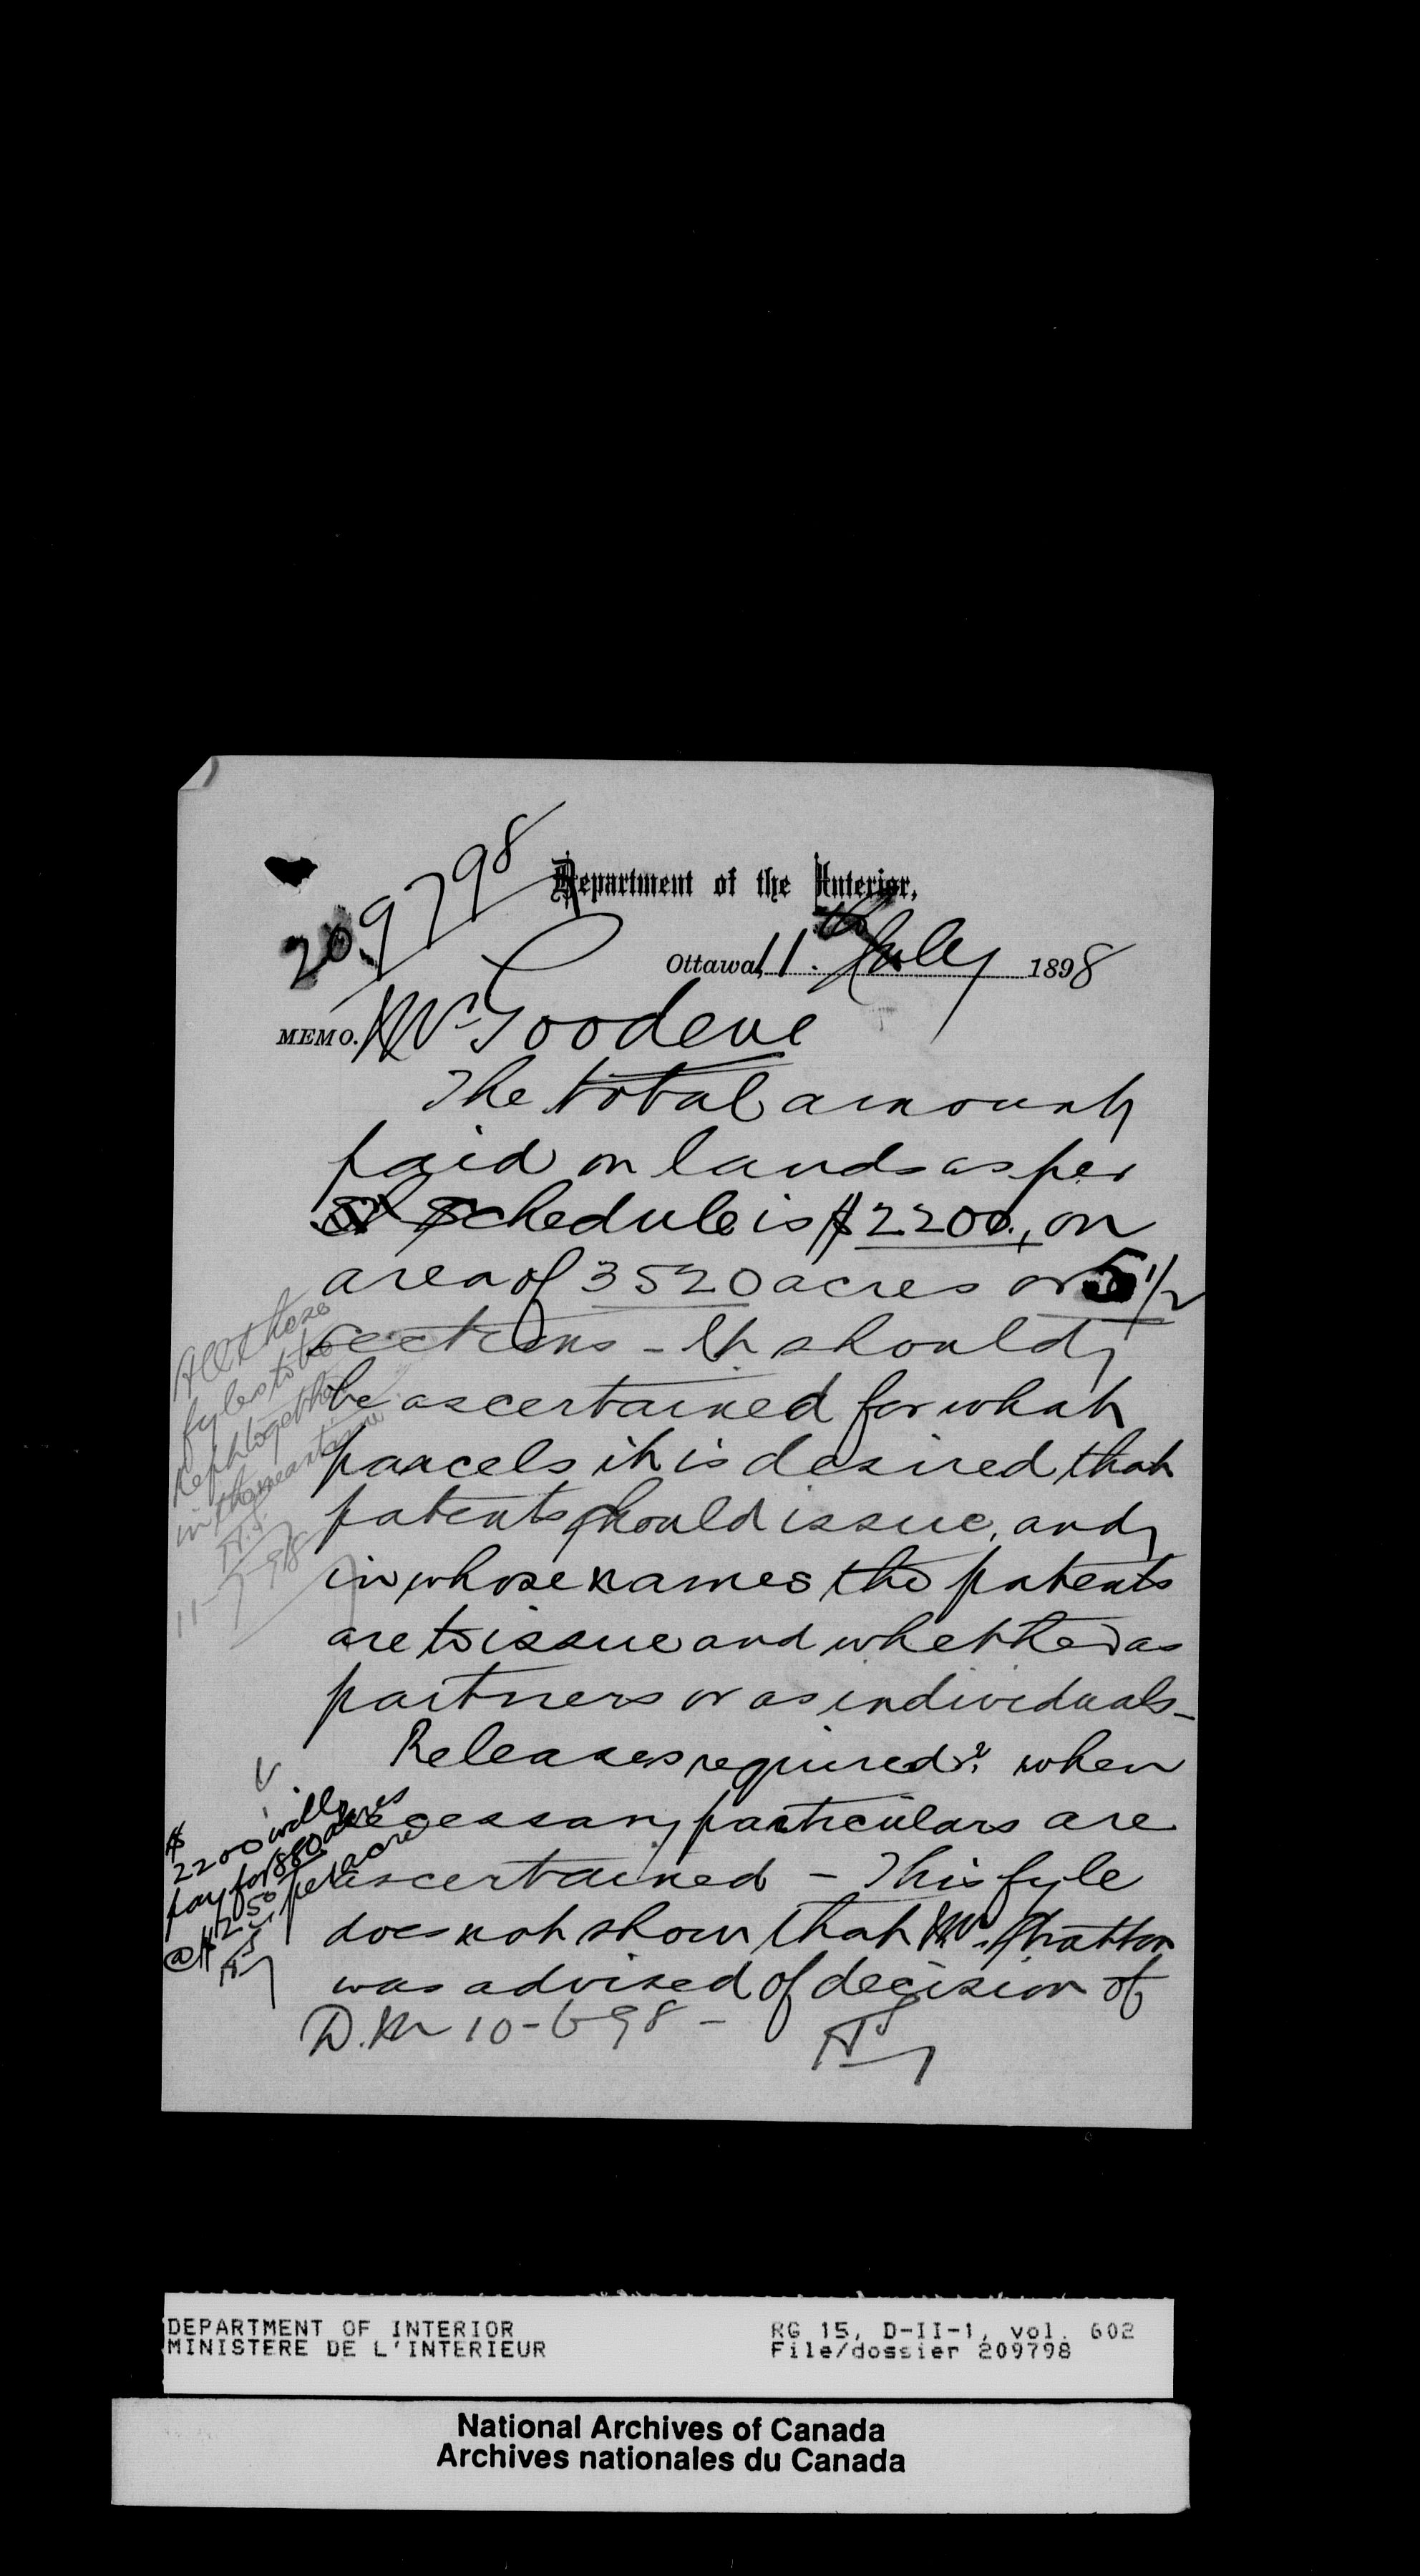 209798
Department of the Interior,
Ottawa, 11th July 1898
MEMO. Mr Goodeve
The total amount
paid on lands as per
schedule is $2200, on
area of 3520 acres or 5 1/2
sections - It should
be ascertained for what
parcels it is desired that
patents should issue, and
in whose names the patents
are to issue and whether as
partners or as individuals -
Releases required? when
necessary particulars are
ascertained - This fyle
does not show that Mr. Stratton
was advised of decision of
D.M 10-6-98 -
All these
fyles to be
kept together
in the meantime
11-7-98
$
2200 will
pay for 880 acres
@ $2.50 per acre
DEPARTMENT OF INTERIOR
MINISTERE DE L'INTERIEUR
RG 15, D-II-1, vol. 602
File/dossier 209798
National Archives of Canada
Archives nationales du Canada